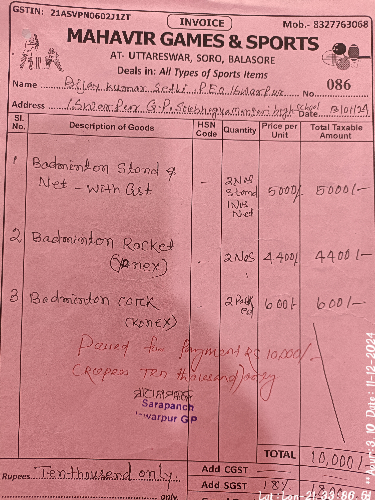 GSTIN: 21ASVPN0602J1ZT
INVOICE
Mob.- 8327763068
MAHAVIR GAMES & SPORTS
AT- UTTARESWAR, SORO, BALASORE
Deals in: All Types of Sports Items
Name Bijay Kumar Sethi P.E.O Iswarpur No. 086
Address Iswarpur G.P. High School Date
Sl. No. Description of Goods HSN Code Quantity Price per Unit Total Taxable Amount
1 Badminton Stand & Net - With Gst - 2 Nos Stand 1 Nos Net 5000/- 5000/-
2 Badminton Racket (Yonex) - 2 Nos 4,400/- 4400/-
3 Badminton cork (Yonex) - 2 Pack 600/- 600/-
Passed for Payment Rs 10,000/-
(Rupees Ten thousand) only
Sarapanch
Iswarpur GP
TOTAL 10,000/-
Rupees Ten thousand only
Add CGST
only Add SGST 18%
Date: 11-12-2024